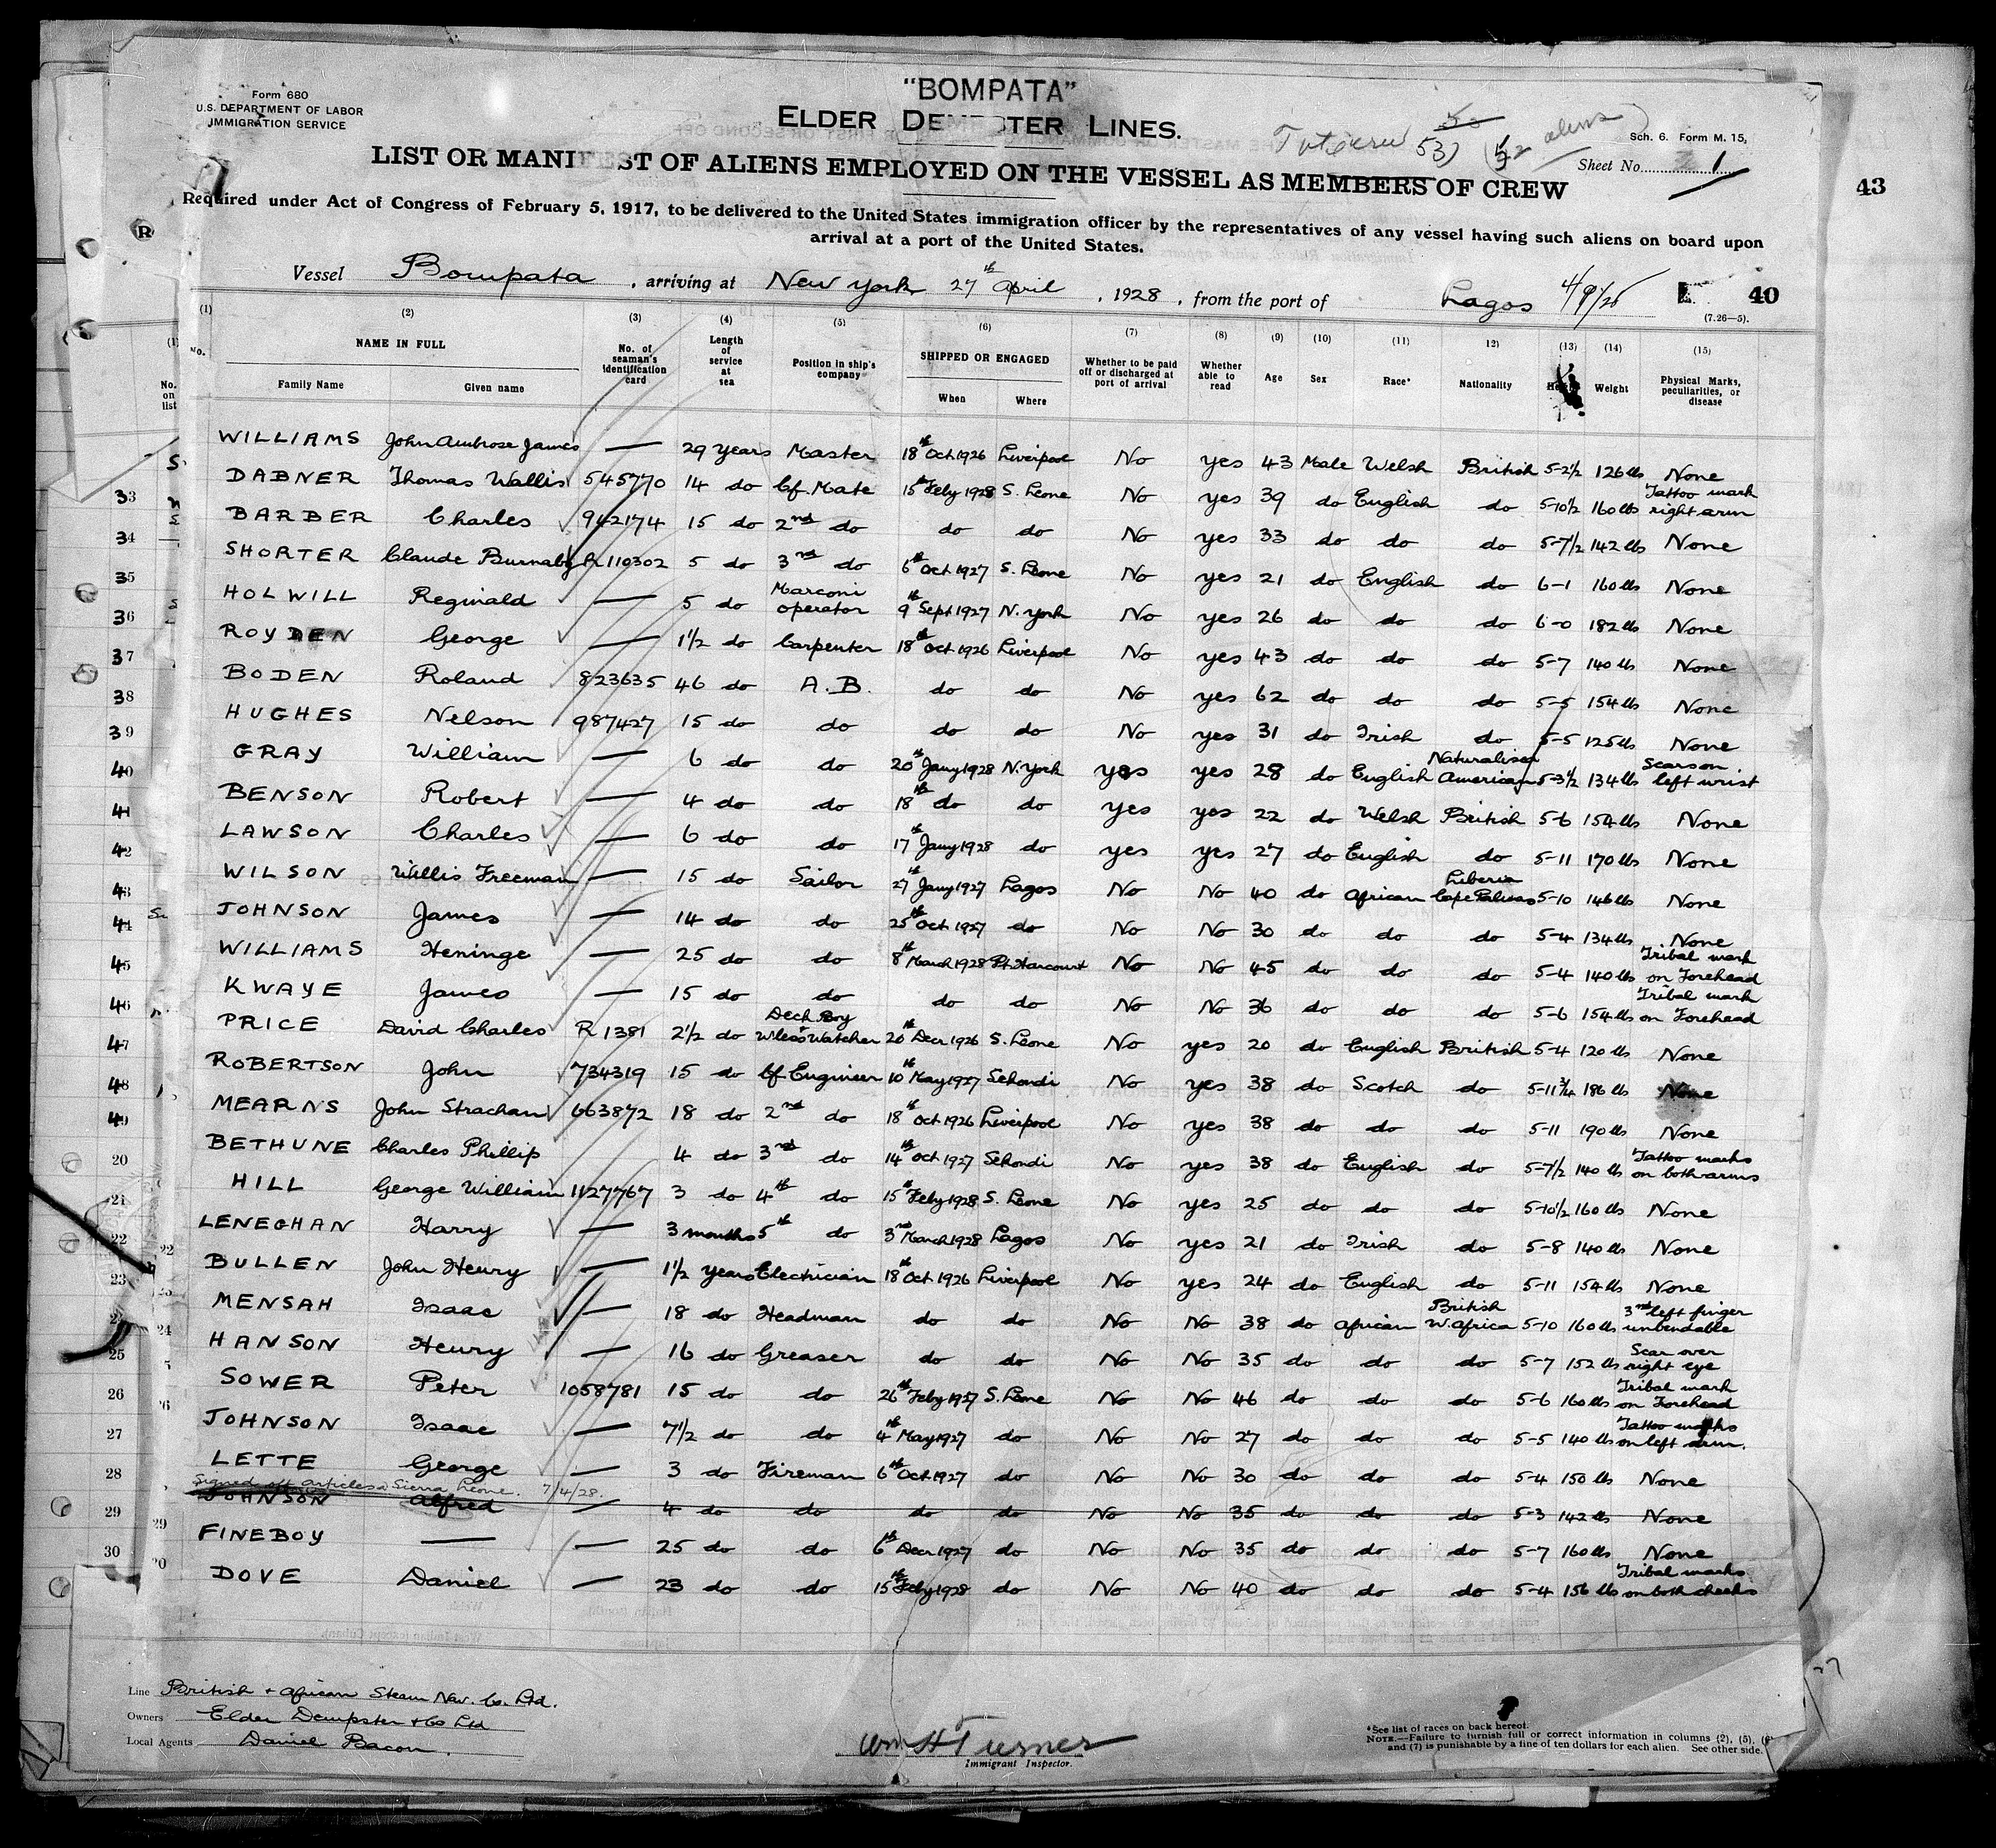 "BOMPATA"
Form 680
U.S. DEPARTMENT OF LABOR
IMMIGRATION SERVICE
ELDER DEMPSTER LINES.
53) (52 aliens)
Sch. 6. Form M. 15,
Sheet No. 1
LIST OR MANIFEST OF ALIENS EMPLOYED ON THE VESSEL AS MEMBERS OF CREW
43
Required under Act of Congress of February 5, 1917, to be delivered to the United States immigration officer by the representatives of any vessel having such aliens on board upon
arrival at a port of the United States.
Vessel Bompata, arriving at New York 27th April, 1928, from the port of Lagos
40
(7.26—5).
(1) (2) (3) (4) (5) (6) (7) (8) (9) (10) (11) 12) (13) (14) (15)
No. NAME IN FULL Family Name Given name No. of seaman's identification card Length of service at sea Position in ship's company SHIPPED OR ENGAGED When Where Whether to be paid off or discharged at port of arrival Whether able to read Age Sex Race* Nationality Weight Physical Marks, peculiarities, or disease
WILLIAMS John Ambrose James — 29 years Master 18th Oct 1926 Liverpool No yes 43 Male Welsh British 5-2½ 126 lbs None
DABNER Thomas Wallis 545770 14 do Cf. Mate 15th Feby 1928 S. Leone No yes 39 do English do 5-10½ 160 lbs Tattoo mark right arm
BARBER Charles 942174 15 do 2nd do do do No yes 33 do do do 5-7½ 142 lbs None
SHORTER Claude Burnaby R110302 5 do 3rd do 6th Oct 1927 S. Leone No yes 21 do English do 6-1 160 lbs None
HOLWILL Reginald — 5 do Marconi operator 9th Sept 1927 N. York No yes 26 do do do 6-0 182 lbs None
ROYDEN George — 1½ do Carpenter 18th Oct 1926 Liverpool No yes 43 do do do 5-7 140 lbs None
BODEN Roland 823635 46 do A.B. do do No yes 62 do do do 5-5 154 lbs None
HUGHES Nelson 987427 15 do do do do No yes 31 do Irish do 5-5 125 lbs None
GRAY William — 6 do do 20th Jany 1928 N. York yes yes 28 do English Naturalised American 5-3½ 134 lbs Scars on left wrist
BENSON Robert — 4 do do 18th do do yes yes 22 do Welsh British 5-6 154 lbs None
LAWSON Charles — 6 do do 17th Jany 1928 do yes yes 27 do English do 5-11 170 lbs None
WILSON Willis Freeman — 15 do Sailor 27th Jany 1927 Lagos No No 40 do African Liberia Cape Palmas 5-10 146 lbs None
JOHNSON James — 14 do do 25th Oct 1927 do No No 30 do do do 5-4 134 lbs None
WILLIAMS Heninge — 25 do do 8th March 1928 Pt. Harcourt No No 45 do do do 5-4 140 lbs Tribal mark on Forehead
KWAYE James — 15 do do do do No No 36 do do do 5-6 154 lbs Tribal mark on Forehead
PRICE David Charles R 1381 2½ do Deck Boy + W'less Watcher 20th Decr 1926 S. Leone No yes 20 do English British 5-4 120 lbs None
ROBERTSON John 734319 15 do Cf Engineer 10th May 1927 Sekondi No yes 38 do Scotch do 5-11¾ 186 lbs None
MEARNS John Strachan 663872 18 do 2nd do 18th Oct 1926 Liverpool No yes 38 do do do 5-11 190 lbs None
BETHUNE Charles Phillip 4 do 3rd do 14th Oct 1927 Sekondi No yes 38 do English do 5-7½ 140 lbs Tattoo marks on both arms
HILL George William 1127767 3 do 4th do 15th Feby 1928 S. Leone No yes 25 do do do 5-10½ 160 lbs None
LENEGHAN Harry — 3 months 5th do 3rd March 1928 Lagos No yes 21 do Irish do 5-8 140 lbs None
BULLEN John Henry — 1½ years Electrician 18th Oct 1926 Liverpool No yes 24 do English do 5-11 154 lbs None
MENSAH Isaac — 18 do Headman do do No No 38 do African British W. Africa 5-10 160 lbs 3rd left finger unbendable
HANSON Henry — 16 do Greaser do do No No 35 do do do 5-7 152 lbs Scar over right eye
SOWER Peter 1058781 15 do do 26th Feby 1927 S. Leone No No 46 do do do 5-6 160 lbs Tribal mark on Forehead
JOHNSON Isaac — 7½ do do 4th May 1927 do No No 27 do do do 5-5 140 lbs Tattoo marks on left arm.
LETTE George — 3 do Fireman 6th Oct 1927 do No No 30 do do do 5-4 150 lbs None
Signed off articles Sierra Leone. 7/4/28.
JOHNSON Alfred — 4 do do do do No No 35 do do do 5-3 142 lbs None
FINEBOY — — 25 do do 6th Decr 1927 do No No 35 do do do 5-7 160 lbs None
DOVE Daniel — 23 do do 15th Feby 1928 do No No 40 do do do 5-4 156 lbs Tribal marks on both cheeks
Line British + African Steam Nav. Co. Ltd.
Owners Elder Dempster + Co Ltd
Local Agents Daniel Bacon.
Wm H Turner
Immigrant Inspector.
*See list of races on back hereof.
NOTE.—Failure to furnish full or correct information in columns (2), (5), (6)
and (7) is punishable by a fine of ten dollars for each alien. See other side.